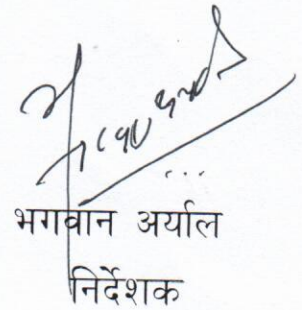 भगवान अर्याल
निर्देशक